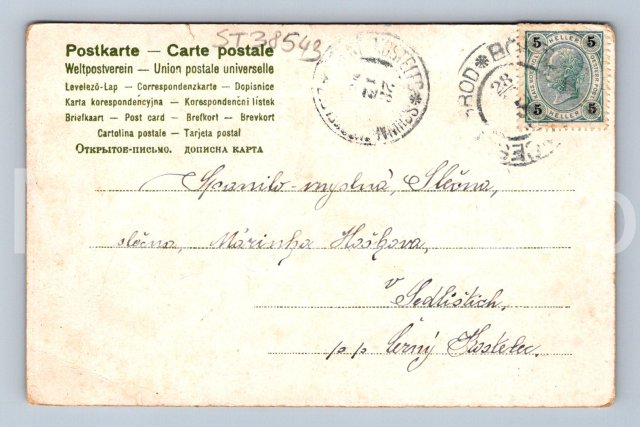 ST38543
Postkarte — Carte postale
Weltpostverein — Union postale universelle
Levelező-Lap — Correspondenzkarte — Dopisnice
Karta korespondencyjna — Korespondenčni listek
Briefkaart — Post card — Brefkort — Brevkort
Cartolina postale — Tarjeta postal
Открытое-письмо. дописна карта
5 HELLER 5
5 HELLER 5
BROD
28
Spanilo-myslná, Slečna,
slečna, Márinka Hoškova,
v Sedlištích,
pp Černý Kostelec.